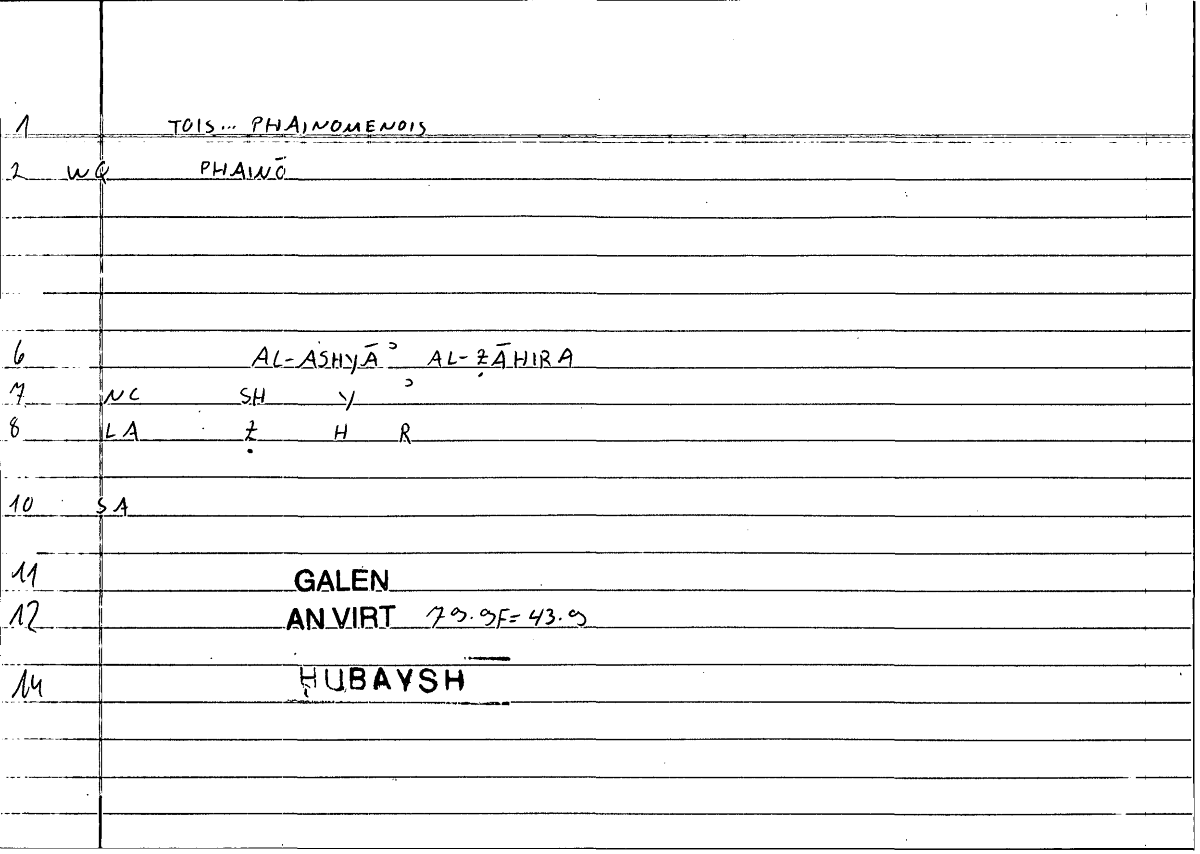 1 TOIS... PHAINOMENOIS
2 WQ PHAINŌ
6 AL-ASHYĀʾ AL-ẒĀHIRA
7 NC SH Y ʾ
8 LA Ẓ H R
10 SA
11 GALEN
12 AN VIRT 79.9F=43.9
14 ḤUBAYSH